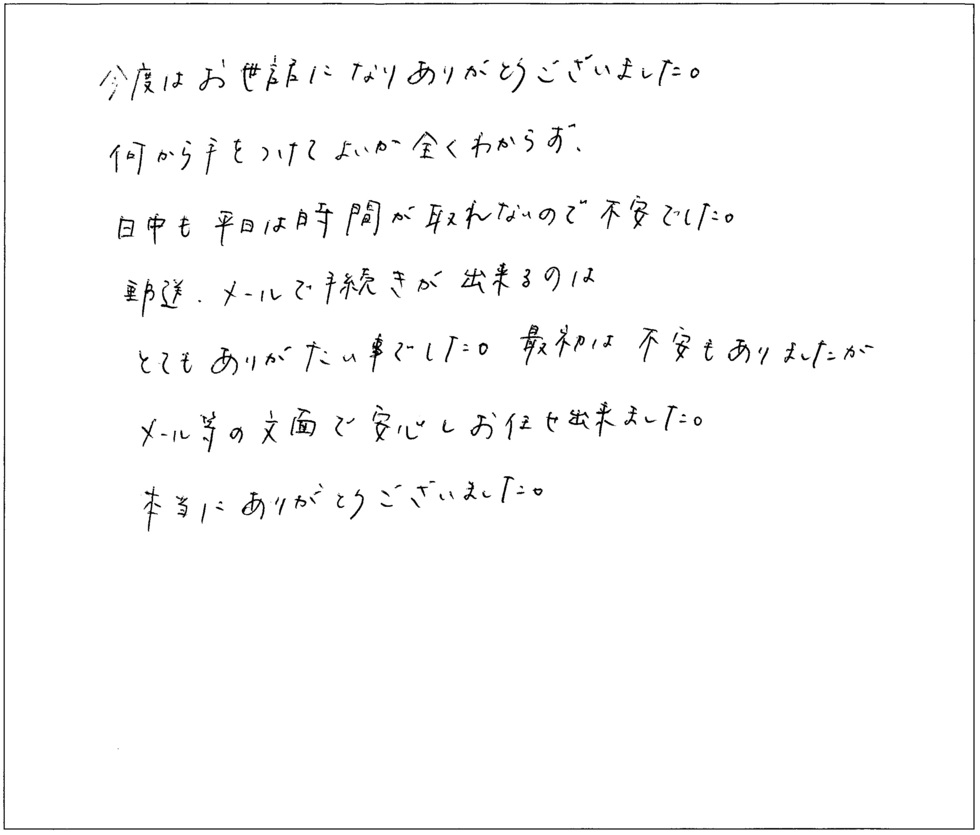 今度はお世話になりありがとうございました。
何から手をつけてよいか全くわからず、
日中も平日は時間が取れないので不安でした。
郵送、メールで手続きが出来るのは
とてもありがたい事でした。最初は不安もありましたが
メール等の文面で安心しお任せ出来ました。
本当にありがとうございました。